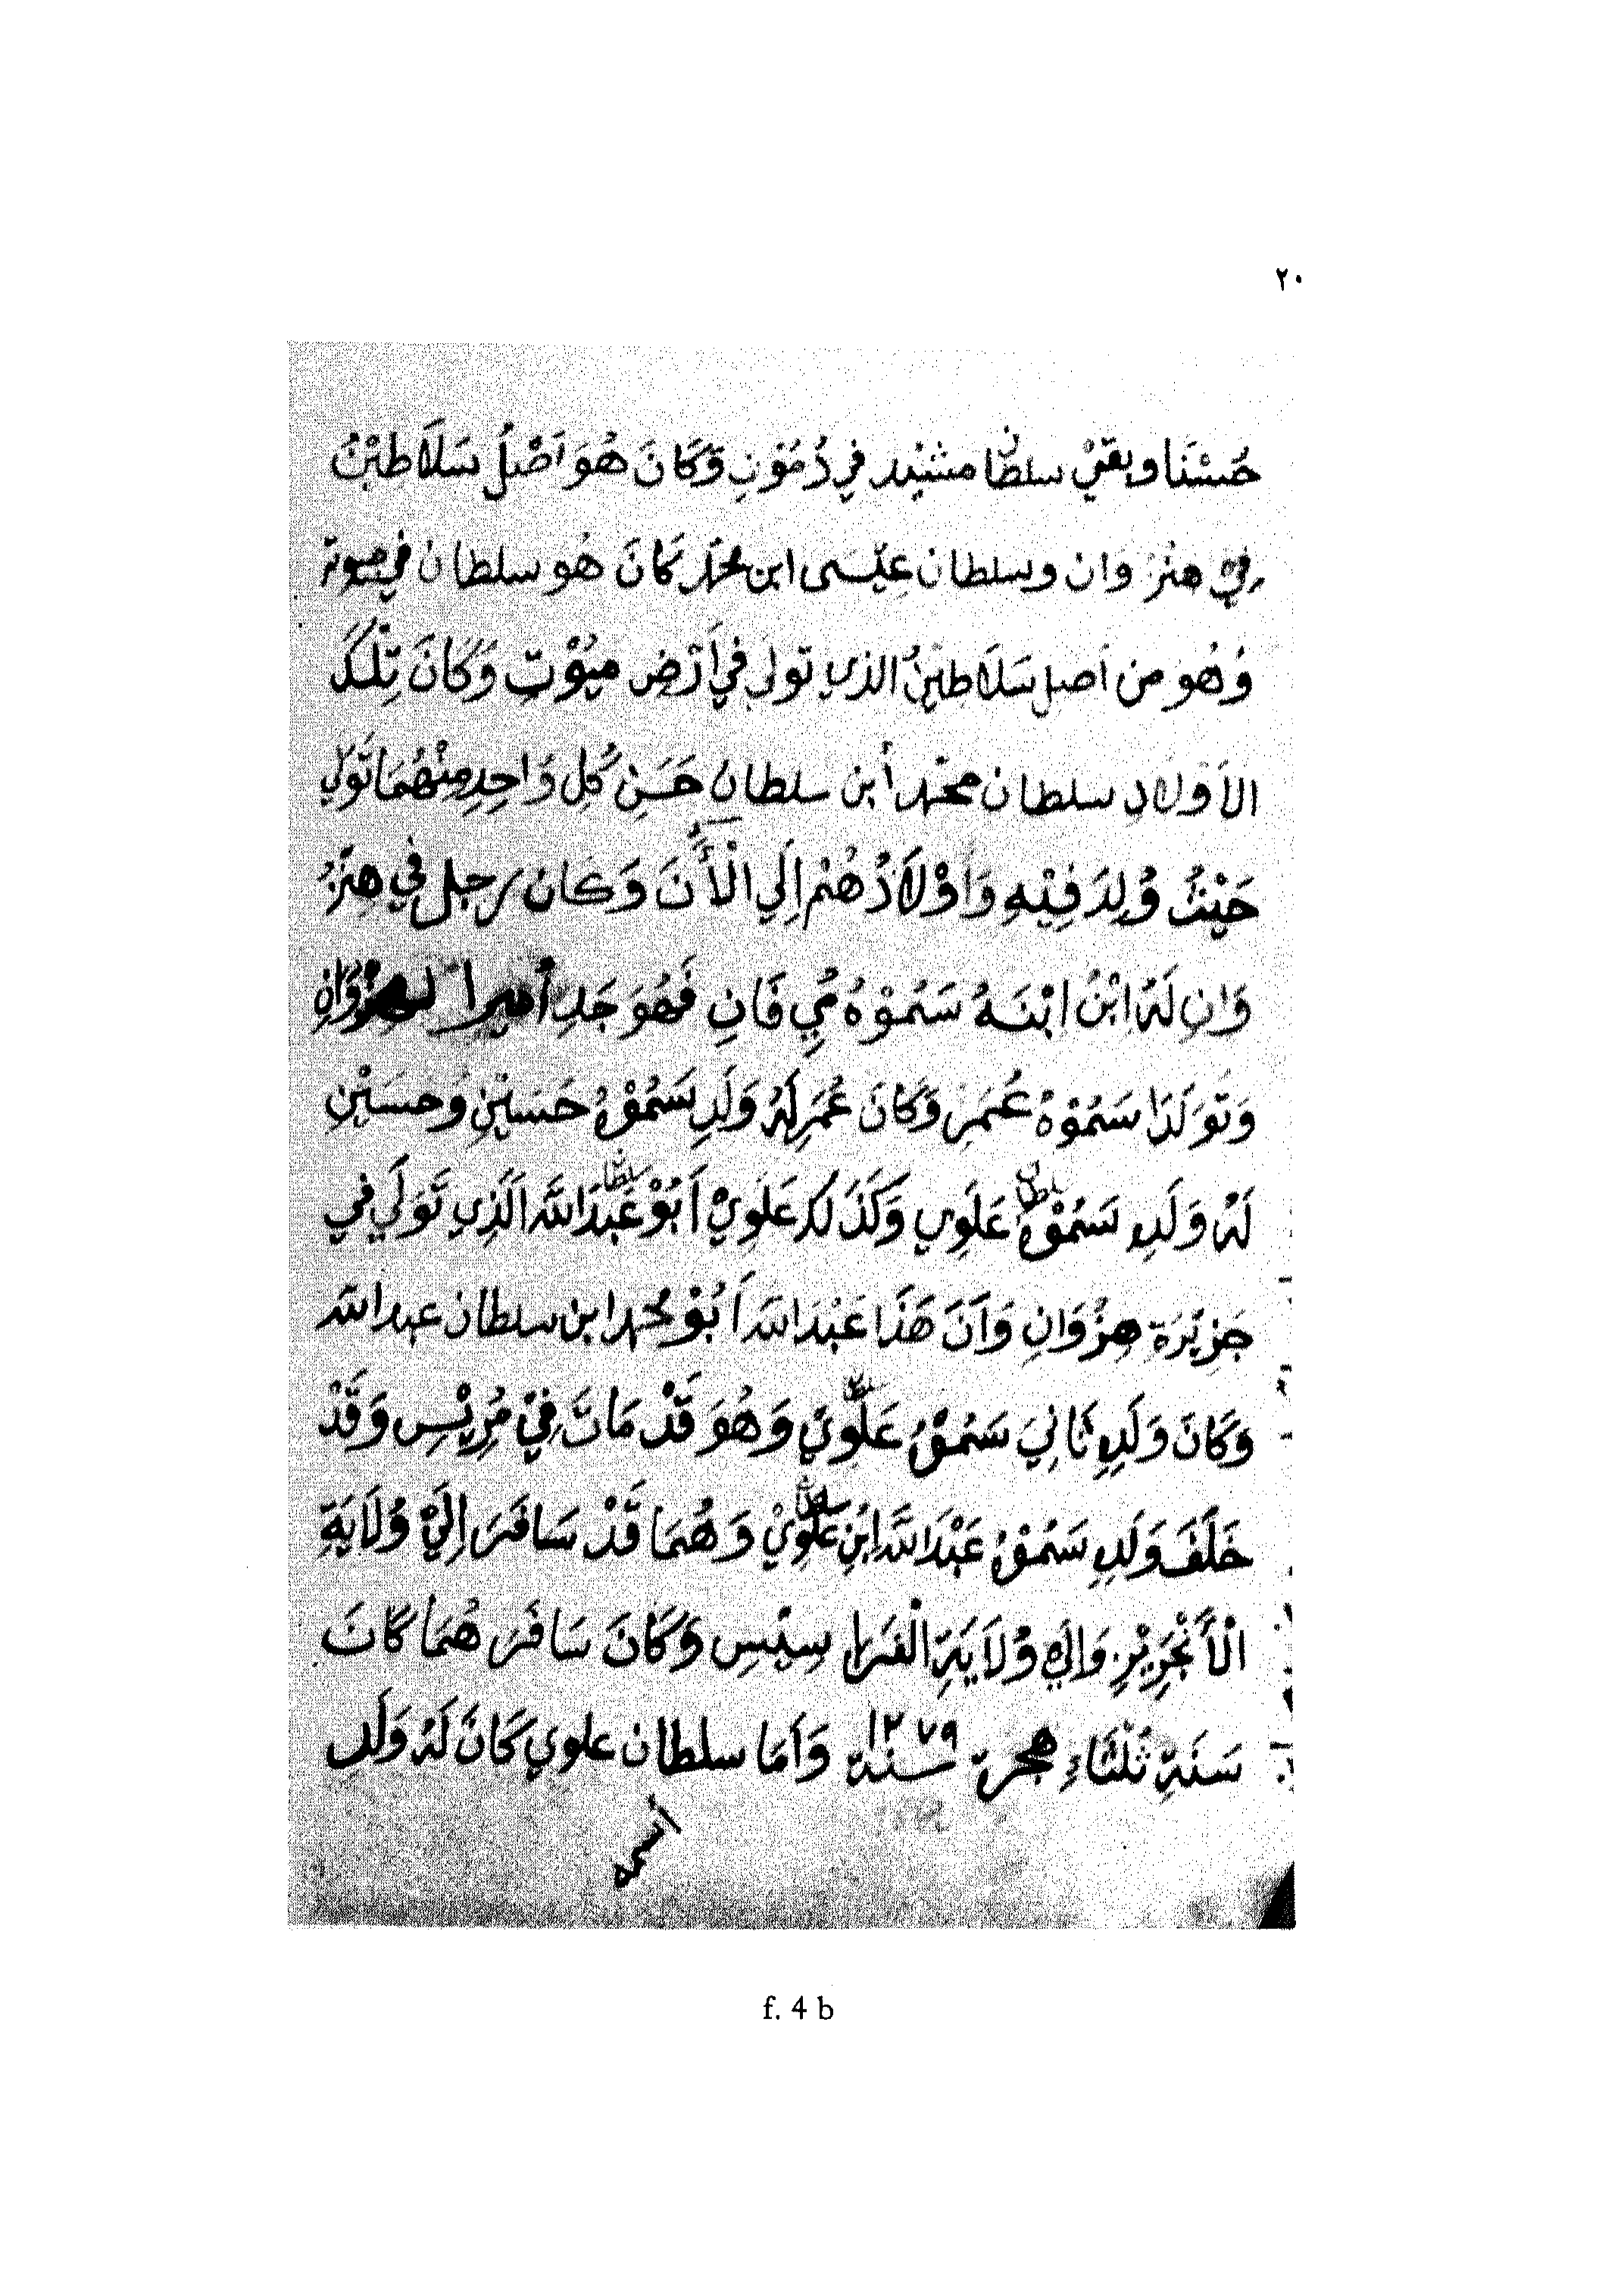 ٢٠
حُسْنَا وبقيْ سلطان مشنيد في دُمُوْنِ وَكَانَ هُوَ اَصْلُ سَلَاطِيْنُ
فِيْ هنزُ وان وسلطان عِيْسَى ابن محمّد كَانَ هُو سلطان في ميوتِ
وَهُو من اصل سَلَاطِيْنُ الذي تولي في أَرْض مَيُوْتِ وَكَانَ تِلْكَ
الاَوْلَادِ سلطان محمّد أبن سلطان حَسَنِ كُلِ وَاحِدِ مِنْهُمَا تَوَلي
حَيْثُ وُلِدَ فِيْهِ وَاَوْلَادُهُمْ اِلَي الْأَنَ وَكَان رجل في هِنْزُ
وَانِ لَهُ ابْنُ ابْنَهُ سَمُوْهُ مي فَانِ فَهُوَ جَدِ أميرا لهنزُوَانِ
وَتَوَلَدَا سَمُوْهُ عُمَرِ وَكَانَ عُمَرِ لَهُ وَلَدِ سَمُوْهُ حَسَيْنِ وَحسَيْنِ
لَهُ وَلَدِ سَمُوْهُ سلطان عَلَوِي وَكَذَلك عَلَوِيْ اَبُوْ سلطان عَبْدَاللَّه الَذِي تَوَلَي في
جَزِيْرَةِ هِنْزُوَانِ وَاَنَ هَذَا عَبْدَاللَّه اَبُوْ محمد ابن سلطان عبدالله
وَكَانَ وَلَدِ ثَانِيَ سَمُوْهُ سلطان عَلَوِيْ وَهُوَ قَدْ مَاتَ فِيْ مُرِيْسِ وَقَدْ
خَلَّفَ وَلَدِ سَمُوْهُ عَبْدَاللَّه ابْنِ سلطان عَلَوِيْ وَهُمَا قَدْ سَافَرَ اِلَيْ وُلَايَةِ
الْأَنْجَرِيْزِ وَاِلَي وُلَايَةِ الْفَرَا سِيْسِ وَكَانَ سَافَرَ هُمَا كَانَ
سَنَةِ ثَلْثَاءِ هجرة سنة ١٢٧٩ وَاَمَا سلطان علوي كَانَ لَهُ وَلَدِ
اسمه
f. 4 b